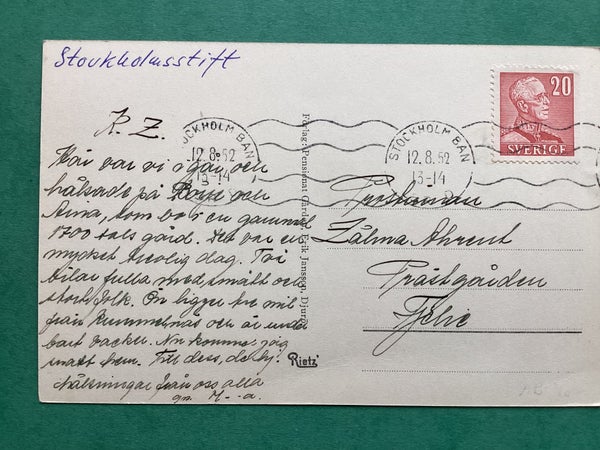 Stockholmsstift
K. Z.
Här var vi igår och
hälsade på Børje och
Aina, som bo i en gammal
1700 tals gård. Det var en
mycket trevlig dag. Tre
bilar fulla med smått och
stort folk. Ön ligger tre mil
från Kummelnäs och är under
bart vacker. Nu kommer jag
snart hem. Till dess, de bj.
hälsningar från oss alla
gm M--a.
Förlag: Pensionat Gården, Erik Jansson, Djurö
Rietz'
STOCKHOLM BAN
12.8.52
13-14
STOCKHOLM BAN
12.8.52
13-14
20
SVERIGE
Prostinnan
Zälma Ahrent
Prästgården